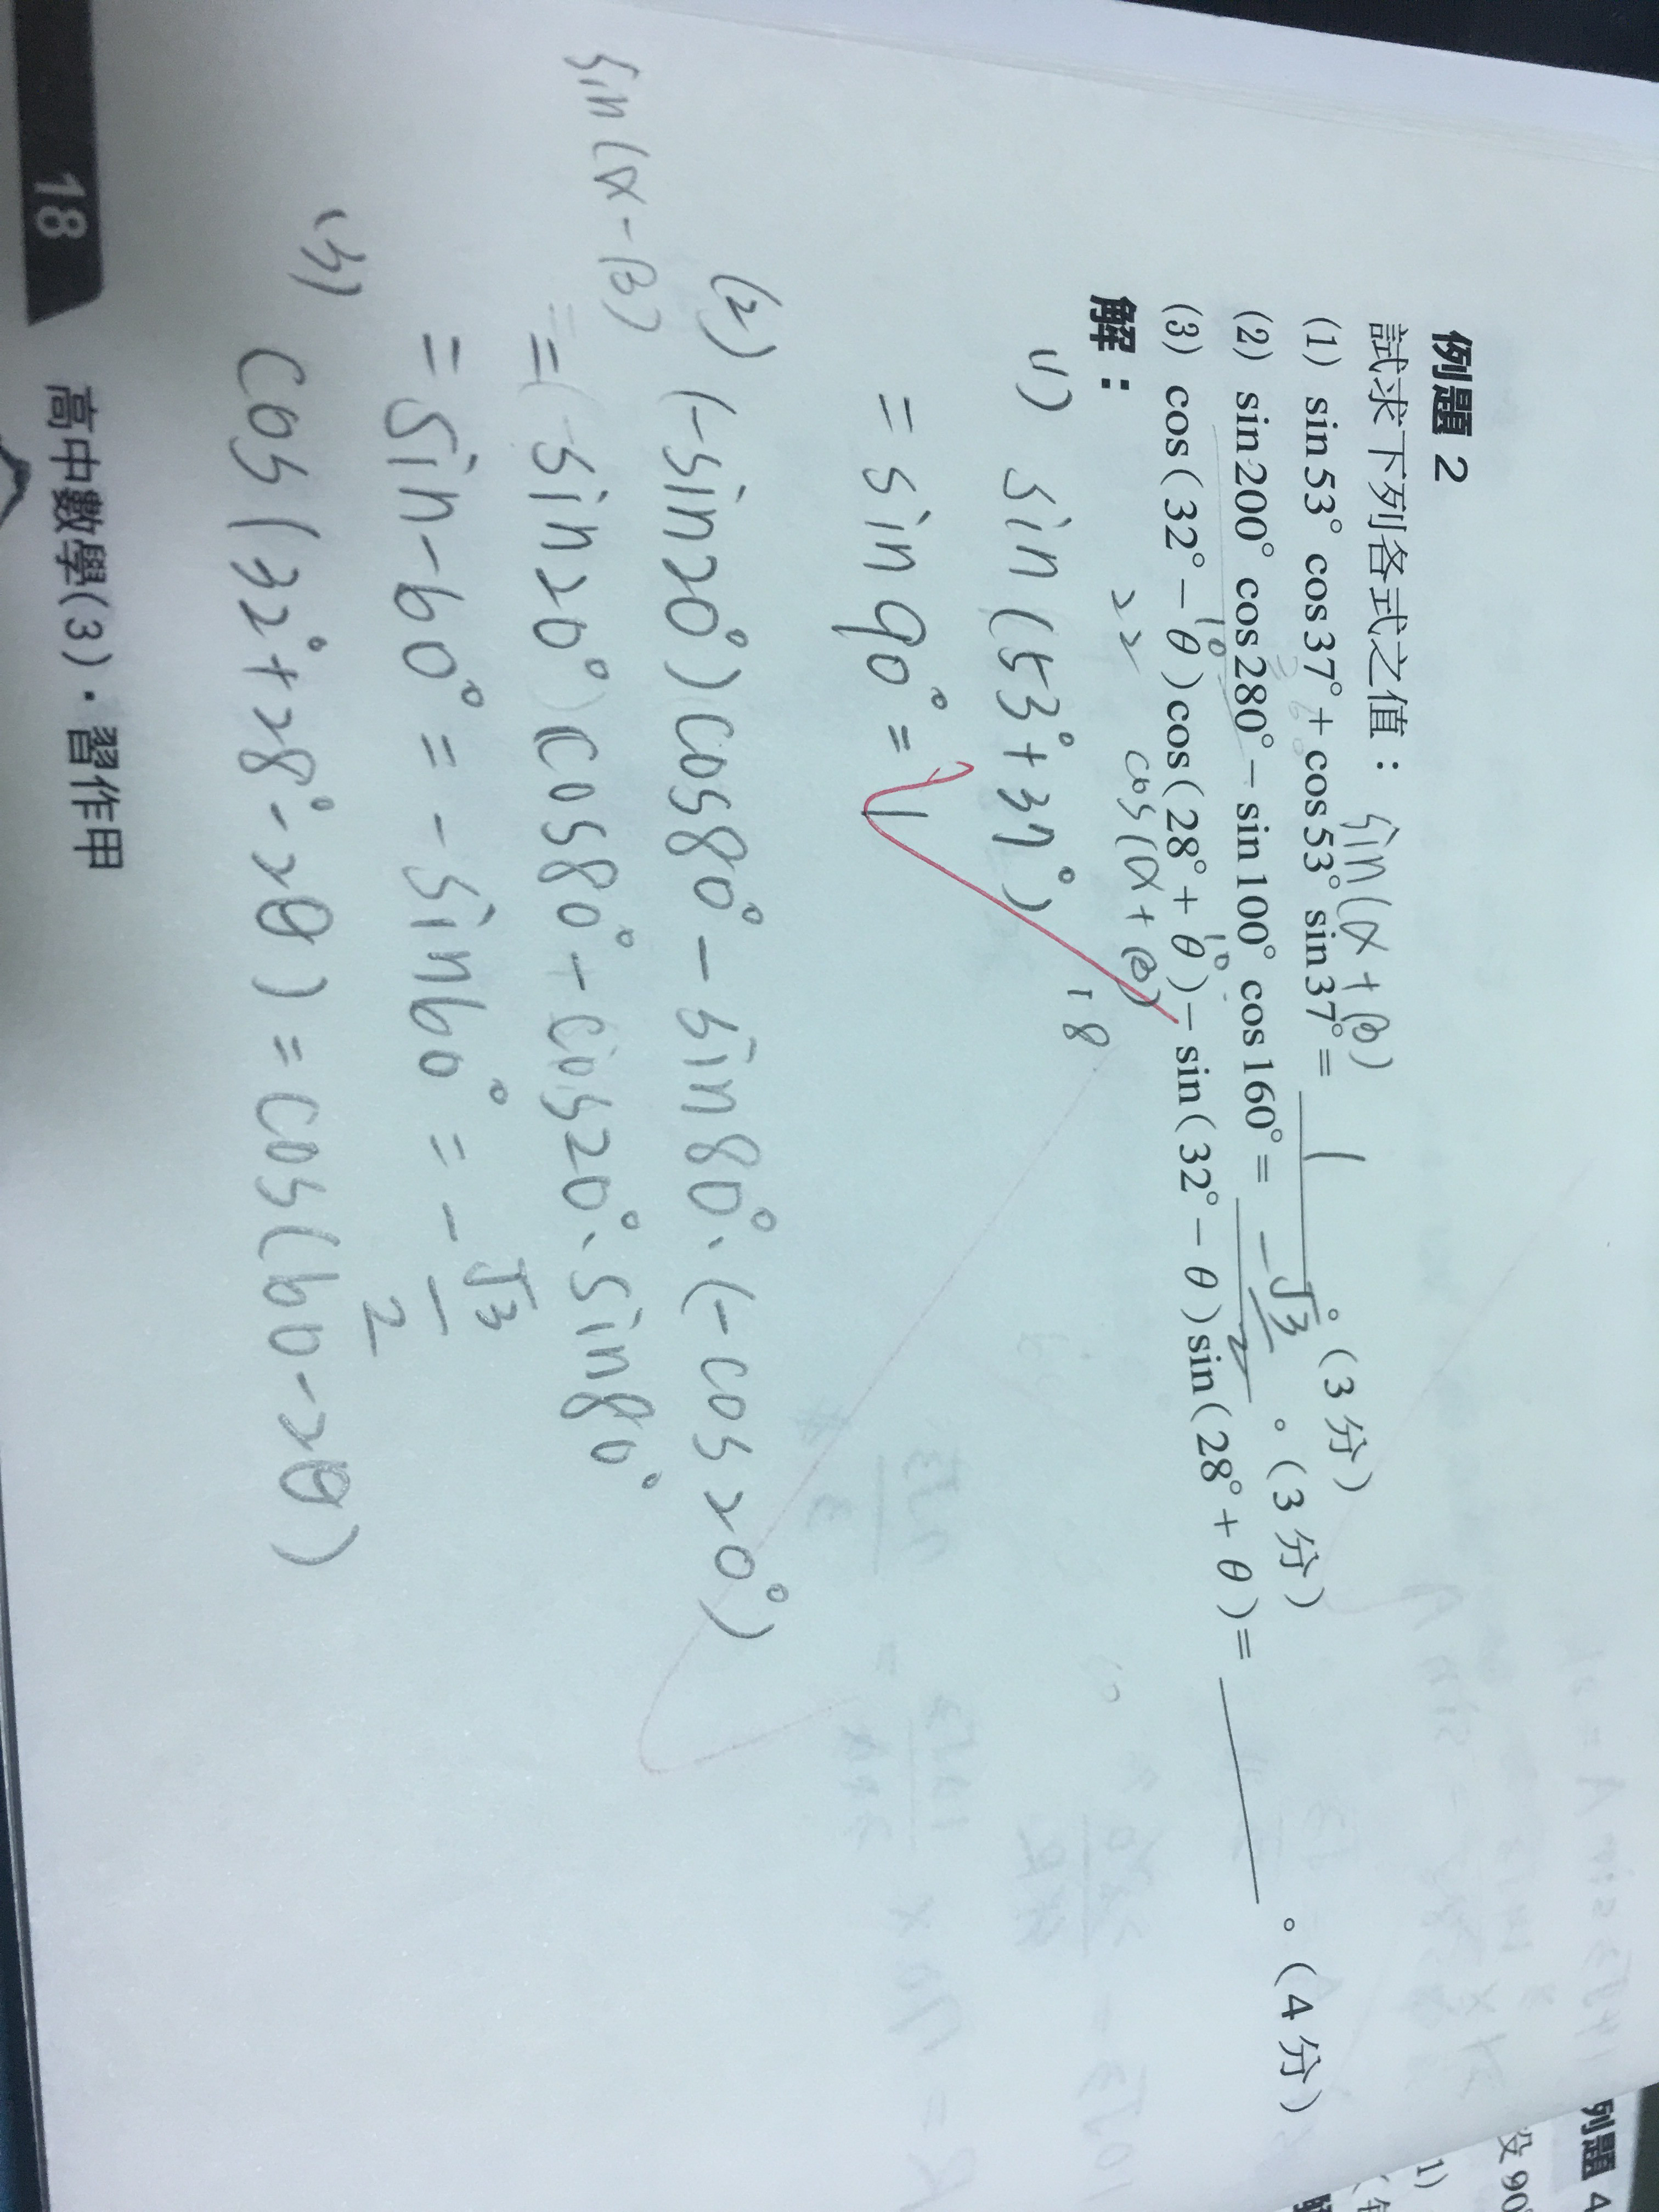 例題 2
試求下列各式之值：
sin(α+β)
(1) sin53° cos37°+cos53° sin37°= 1 。(3 分)
(2) sin200° cos280°−sin100° cos160°= −√3/2 。(3 分)
10 10
(3) cos(32°−θ)cos(28°+θ)−sin(32°−θ)sin(28°+θ)= 。(4 分)
22 cos(α+β)
解：
18
(1) sin(53°+37°)
= sin90° = 1
(2) (-sin20°)cos80° - sin80°·(-cos20°)
= (-sin20°)cos80° + cos20°·sin80°
sin(α-β)
= sin-60° = -sin60° = -√3/2
(3) cos(32°+28°-2θ) = cos(60-2θ)
18 高中數學(3)·習作甲
列題 4
設 90°
1)